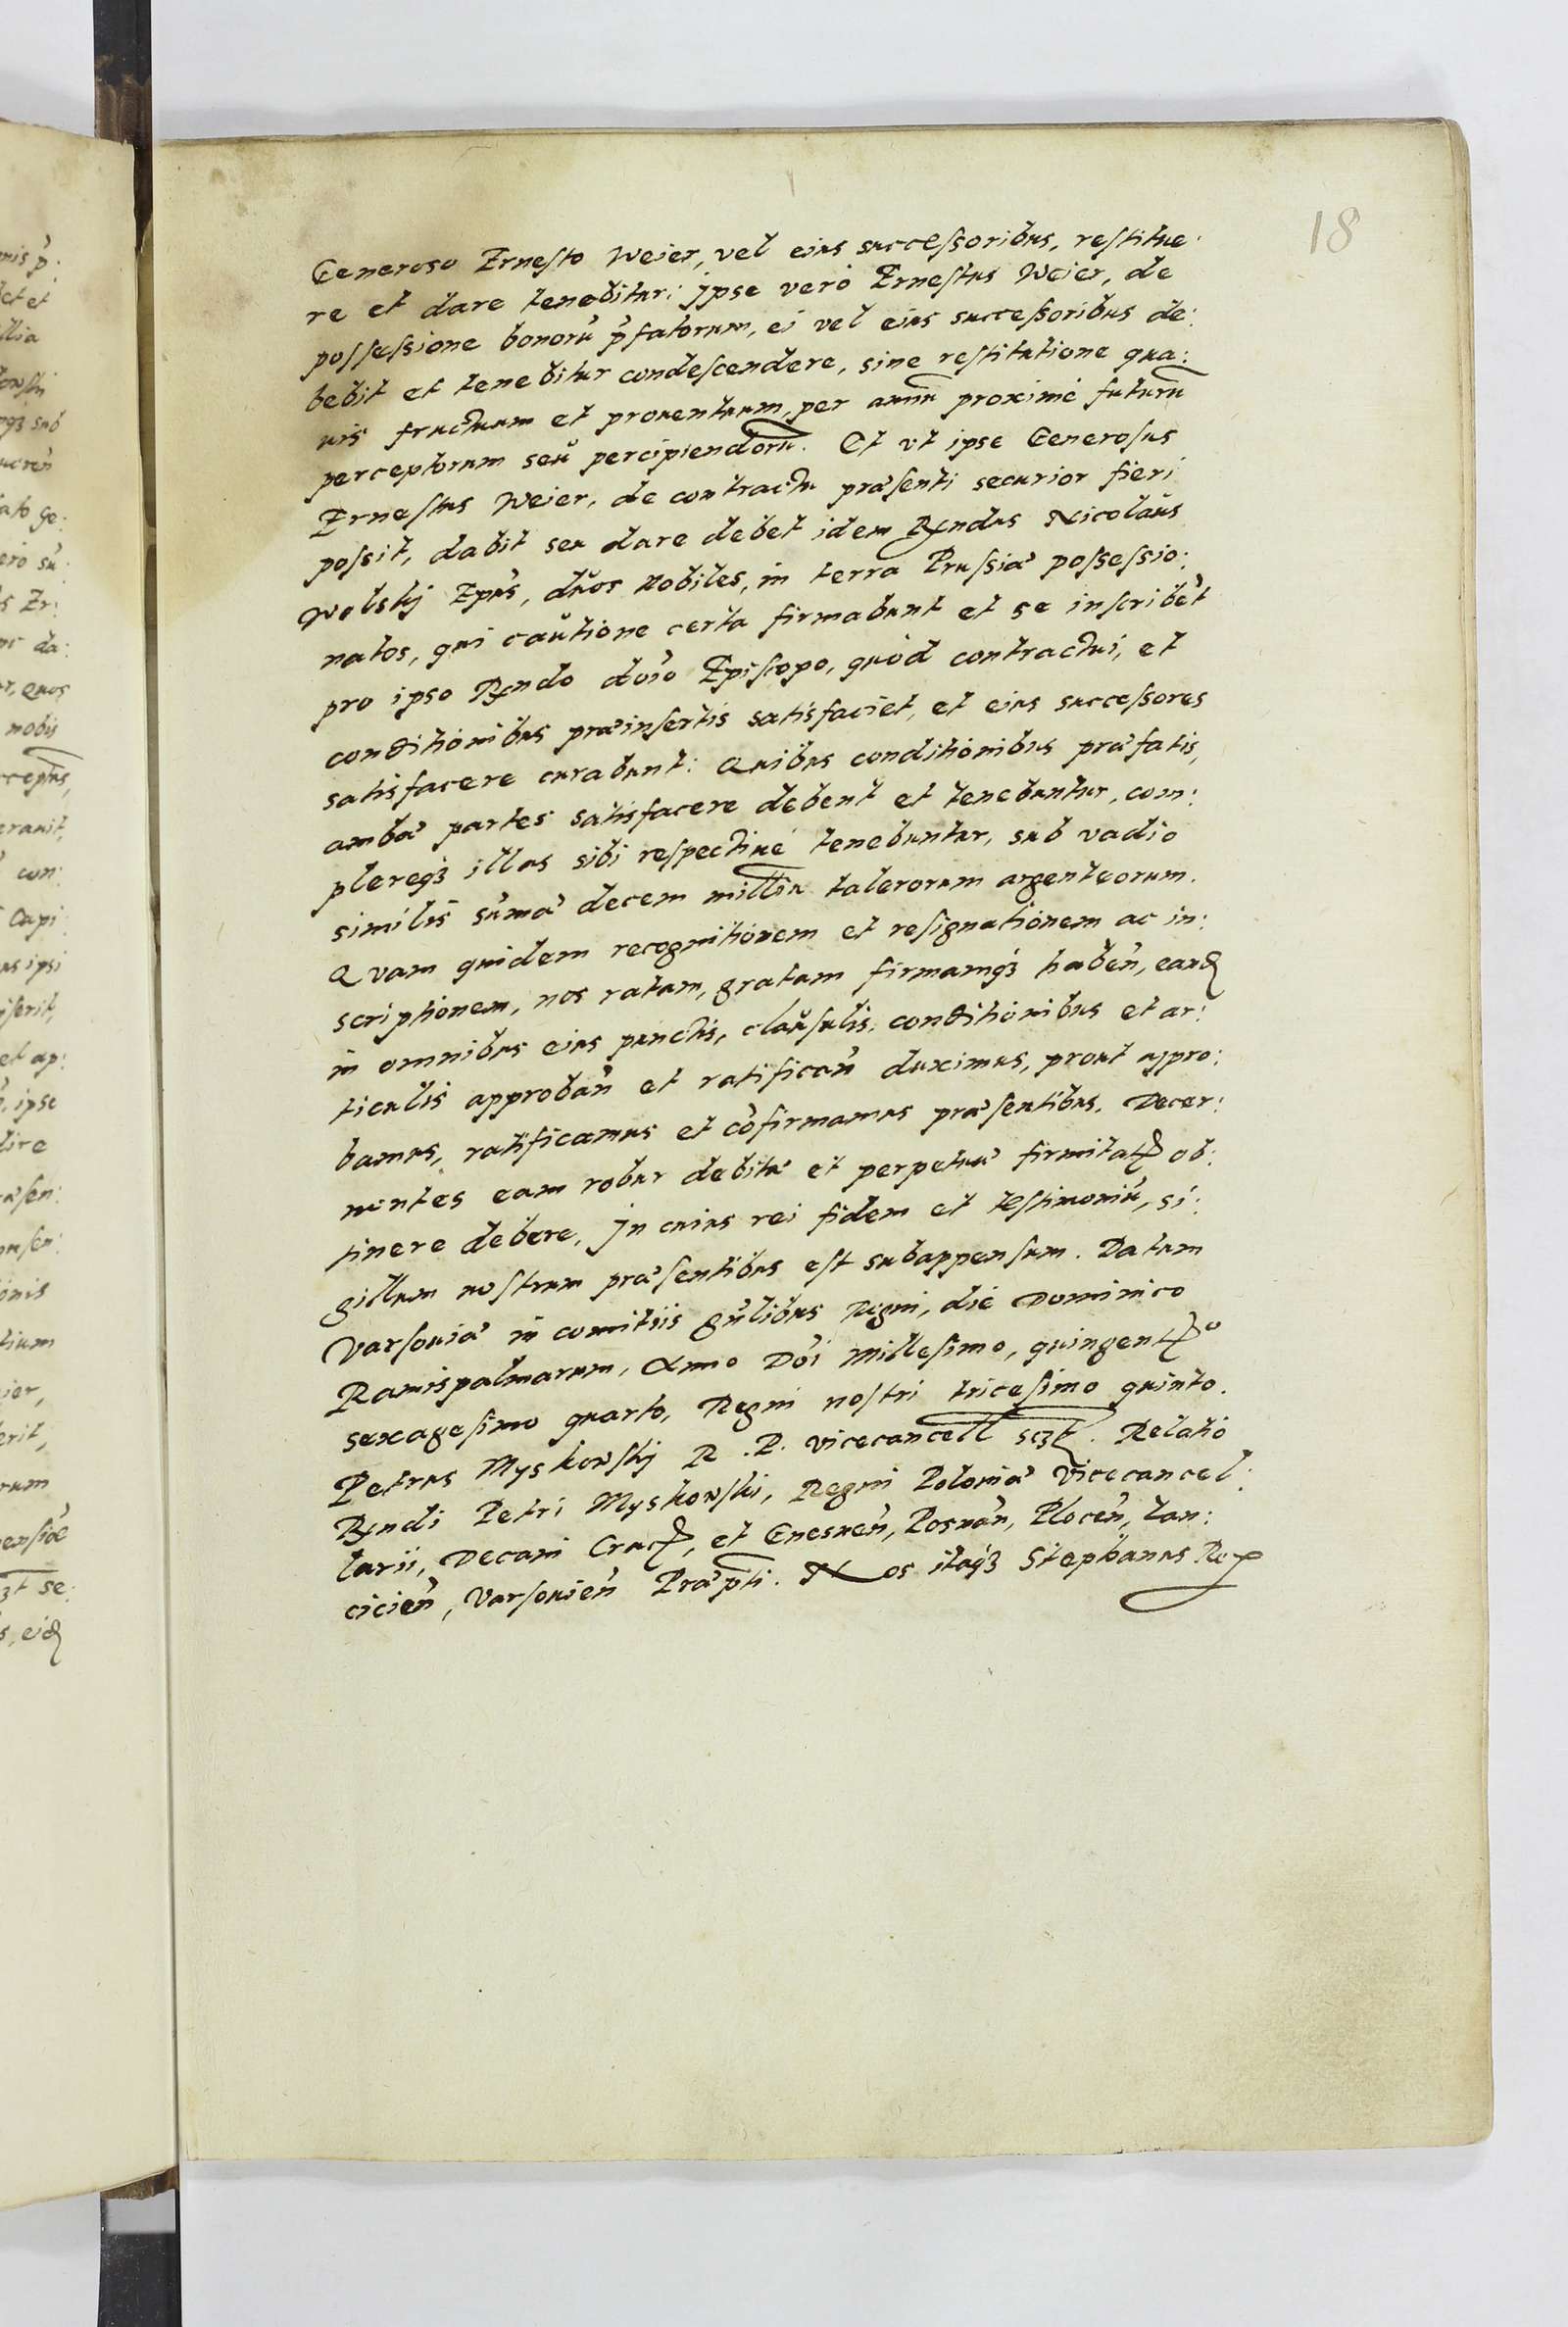 18
Generoso Ernesto Weier, vel eius successoribus, restitue:
re et dare tenebitur: jpse verò Ernestus Weier, de
possessione bonorũ p̃fatorum, ei vel eius successoribus de:
bebit et tenebitur condescendere, sine restitutione qua:
uis fructuum et prouentuum, per annũ proximè futurũ
perceptorum seu percipiendorũ. Et vt ipse Generosus
Ernestus Weier, de contractu præsenti securior fieri
possit, dabit seu dare debet idem Rndus Nicolaus
Wolskj Epus, duos nobiles, in terra Prussiæ possessio:
natos, qui cautione certa firmabunt et se inscribẽt
pro ipso Rndo dño Episcopo, quòd contractui, et
conditionibus præinsertis satisfaciet, et eius successores
satisfacere curabunt: Quibus conditionibus præfatis,
ambæ partes satisfacere debent et tenebuntur, com:
plereqз illas sibi respectiuè tenebuntur, sub vadio
similis sũmæ decem milliũ talerorum argenteorum.
Quam quidem recognitionem et resignationem ac in:
scriptionem, nos ratam, gratam firmamqз habeñ, eand
in omnibus eius punctis, clausulis, conditionibus et ar:
ticulis approbañ et ratificañ duximus, prout appro:
bamus, ratificamus et cõfirmamus præsentibus. Decer:
nentes eam robur debitæ et perpetuæ firmitatꝭ ob:
tinere debere. Jn cuius rei fidem et testimoniũ, si:
gillum nostrum præsentibus est subappensum. Datum
Varsouiæ in comitiis gñlibus Regni, die Dominico
Ramispalmarum, Anno Dñi Millesimo, quingentꝭo
sexagesimo quarto, Regni nostri tricesimo quinto.
Petrus Myskowskj R. P. vicecancell sczt. Relatio
Rndi Petri Myskowski, Regni Poloniæ Vicecancel:
larii, Decani Cracꝭ, et Gnesneñ, Posnañ, Ploceñ, Lan:
cicieñ, Varsouieñ Præpti. Nos itaqз Stephanus Rex